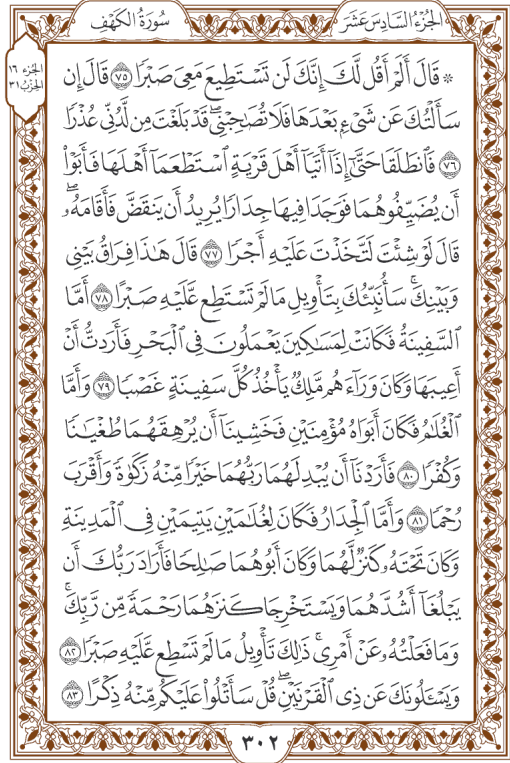 الجُزْءُ السَّادِسَ عَشَرَ
سُورَةُ الكَهْفِ
الجُزء ١٦
الحِزبُ ٣١
۞ قَالَ أَلَمْ أَقُل لَّكَ إِنَّكَ لَن تَسْتَطِيعَ مَعِيَ صَبْرًا ٧٥ قَالَ إِن
سَأَلْتُكَ عَن شَيْءٍ بَعْدَهَا فَلَا تُصَٰحِبْنِي ۖ قَدْ بَلَغْتَ مِن لَّدُنِّي عُذْرًا
٧٦ فَٱنطَلَقَا حَتَّىٰٓ إِذَآ أَتَيَآ أَهْلَ قَرْيَةٍ ٱسْتَطْعَمَآ أَهْلَهَا فَأَبَوْا۟
أَن يُضَيِّفُوهُمَا فَوَجَدَا فِيهَا جِدَارًا يُرِيدُ أَن يَنقَضَّ فَأَقَامَهُۥ ۖ
قَالَ لَوْ شِئْتَ لَتَّخَذْتَ عَلَيْهِ أَجْرًا ٧٧ قَالَ هَٰذَا فِرَاقُ بَيْنِي
وَبَيْنِكَ ۚ سَأُنَبِّئُكَ بِتَأْوِيلِ مَا لَمْ تَسْتَطِع عَّلَيْهِ صَبْرًا ٧٨ أَمَّا
ٱلسَّفِينَةُ فَكَانَتْ لِمَسَٰكِينَ يَعْمَلُونَ فِي ٱلْبَحْرِ فَأَرَدتُّ أَنْ
أَعِيبَهَا وَكَانَ وَرَآءَهُم مَّلِكٌ يَأْخُذُ كُلَّ سَفِينَةٍ غَصْبًا ٧٩ وَأَمَّا
ٱلْغُلَٰمُ فَكَانَ أَبَوَاهُ مُؤْمِنَيْنِ فَخَشِينَآ أَن يُرْهِقَهُمَا طُغْيَٰنًا
وَكُفْرًا ٨٠ فَأَرَدْنَآ أَن يُبْدِلَهُمَا رَبُّهُمَا خَيْرًا مِّنْهُ زَكَوٰةً وَأَقْرَبَ
رُحْمًا ٨١ وَأَمَّا ٱلْجِدَارُ فَكَانَ لِغُلَٰمَيْنِ يَتِيمَيْنِ فِي ٱلْمَدِينَةِ
وَكَانَ تَحْتَهُۥ كَنزٌ لَّهُمَا وَكَانَ أَبُوهُمَا صَٰلِحًا فَأَرَادَ رَبُّكَ أَن
يَبْلُغَآ أَشُدَّهُمَا وَيَسْتَخْرِجَا كَنزَهُمَا رَحْمَةً مِّن رَّبِّكَ ۚ
وَمَا فَعَلْتُهُۥ عَنْ أَمْرِي ۚ ذَٰلِكَ تَأْوِيلُ مَا لَمْ تَسْطِع عَّلَيْهِ صَبْرًا ٨٢
وَيَسْـَٔلُونَكَ عَن ذِي ٱلْقَرْنَيْنِ ۖ قُلْ سَأَتْلُوا۟ عَلَيْكُم مِّنْهُ ذِكْرًا ٨٣
٣٠٢